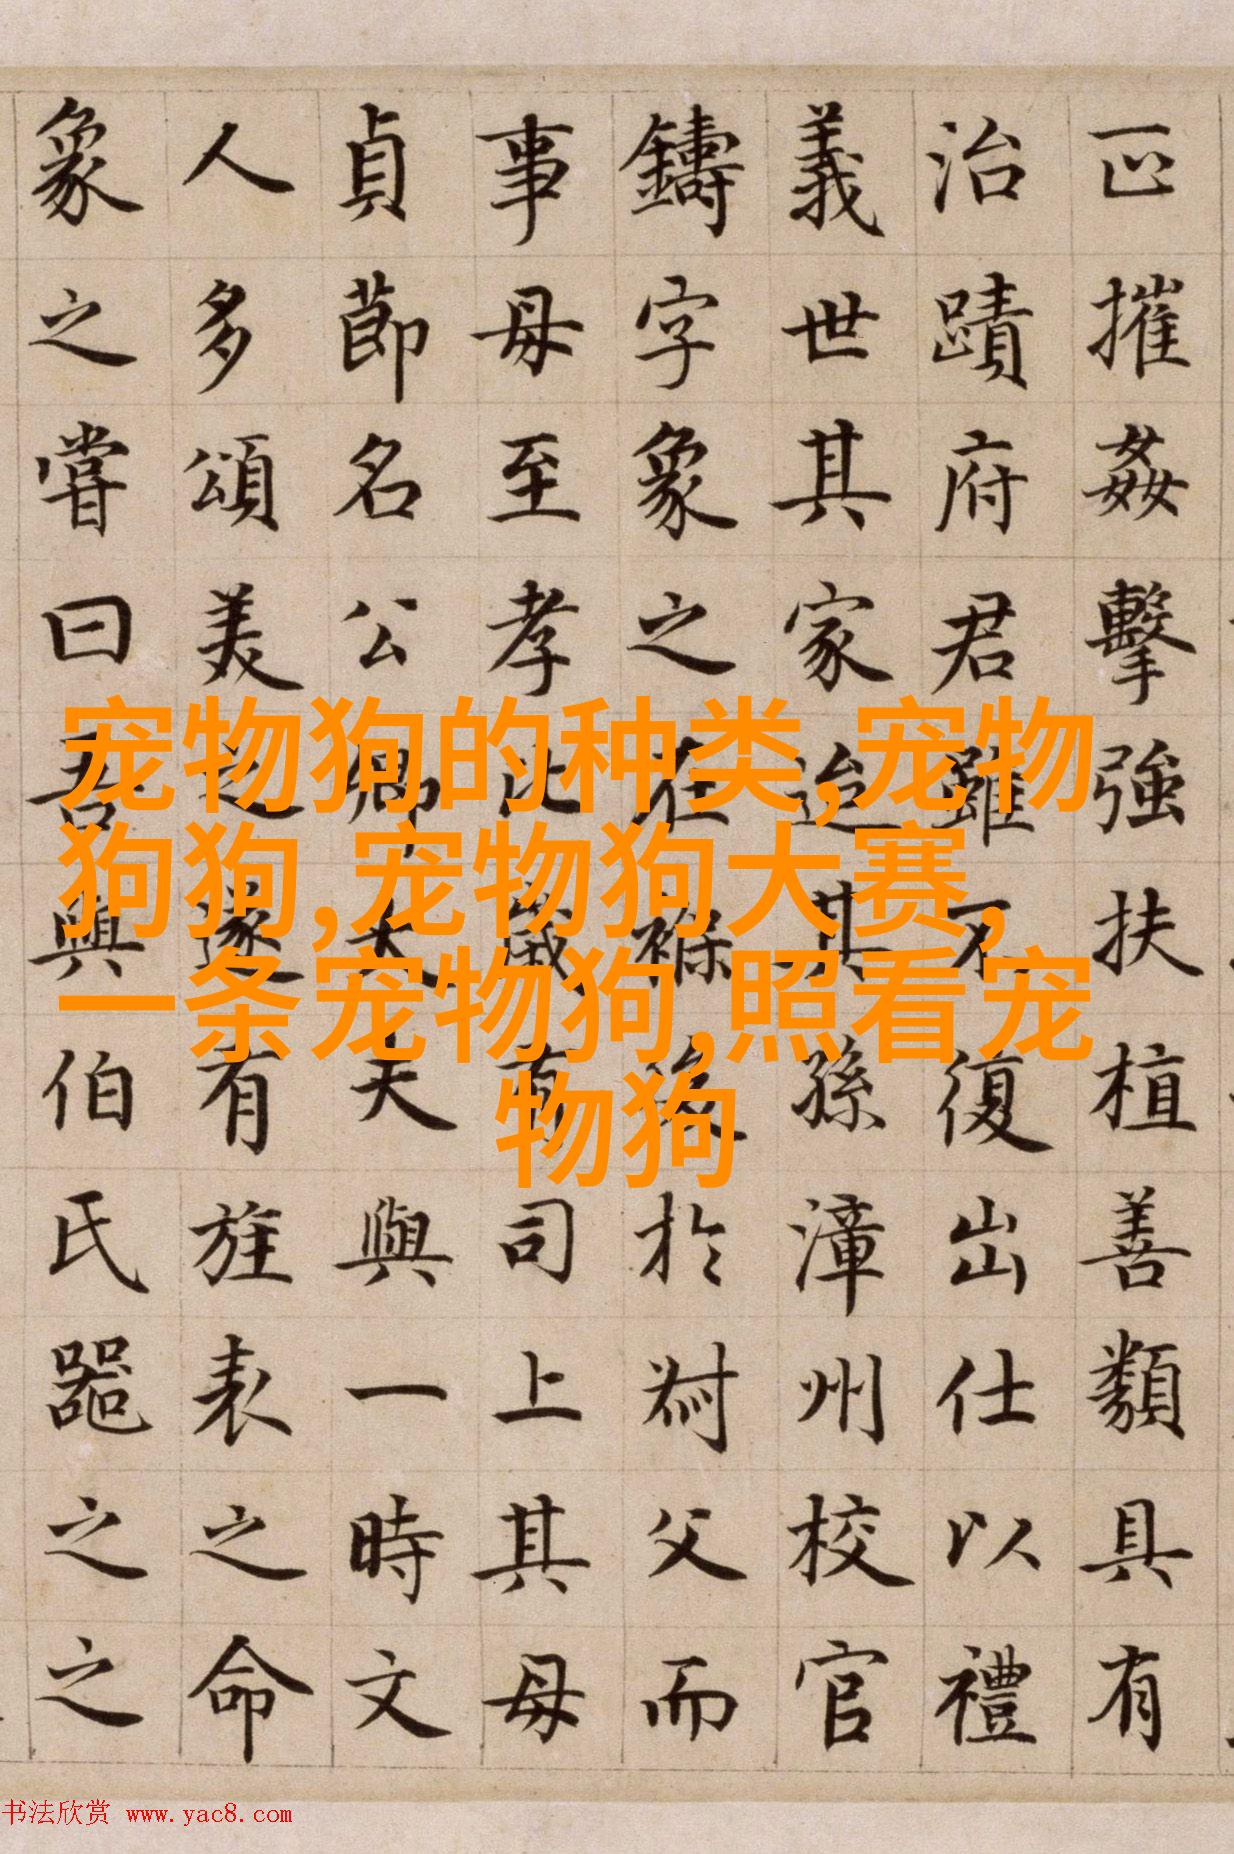 摧姦擊強扶植善類具有
治蹟府君雖不復出仕以禮
義世其家迨其孫漳州校官
鑄字象之在褓於父而
事母至孝比歲有司上其母
貞節名公卿大夫與一時文
人多頌美之遂有旌表之命
象之嘗曰吾與伯氏噐之之
宠物狗的种类,宠物
狗狗,宠物狗大赛,
一条宠物狗,照看宠
物狗
书法欣赏 www.yac8.com